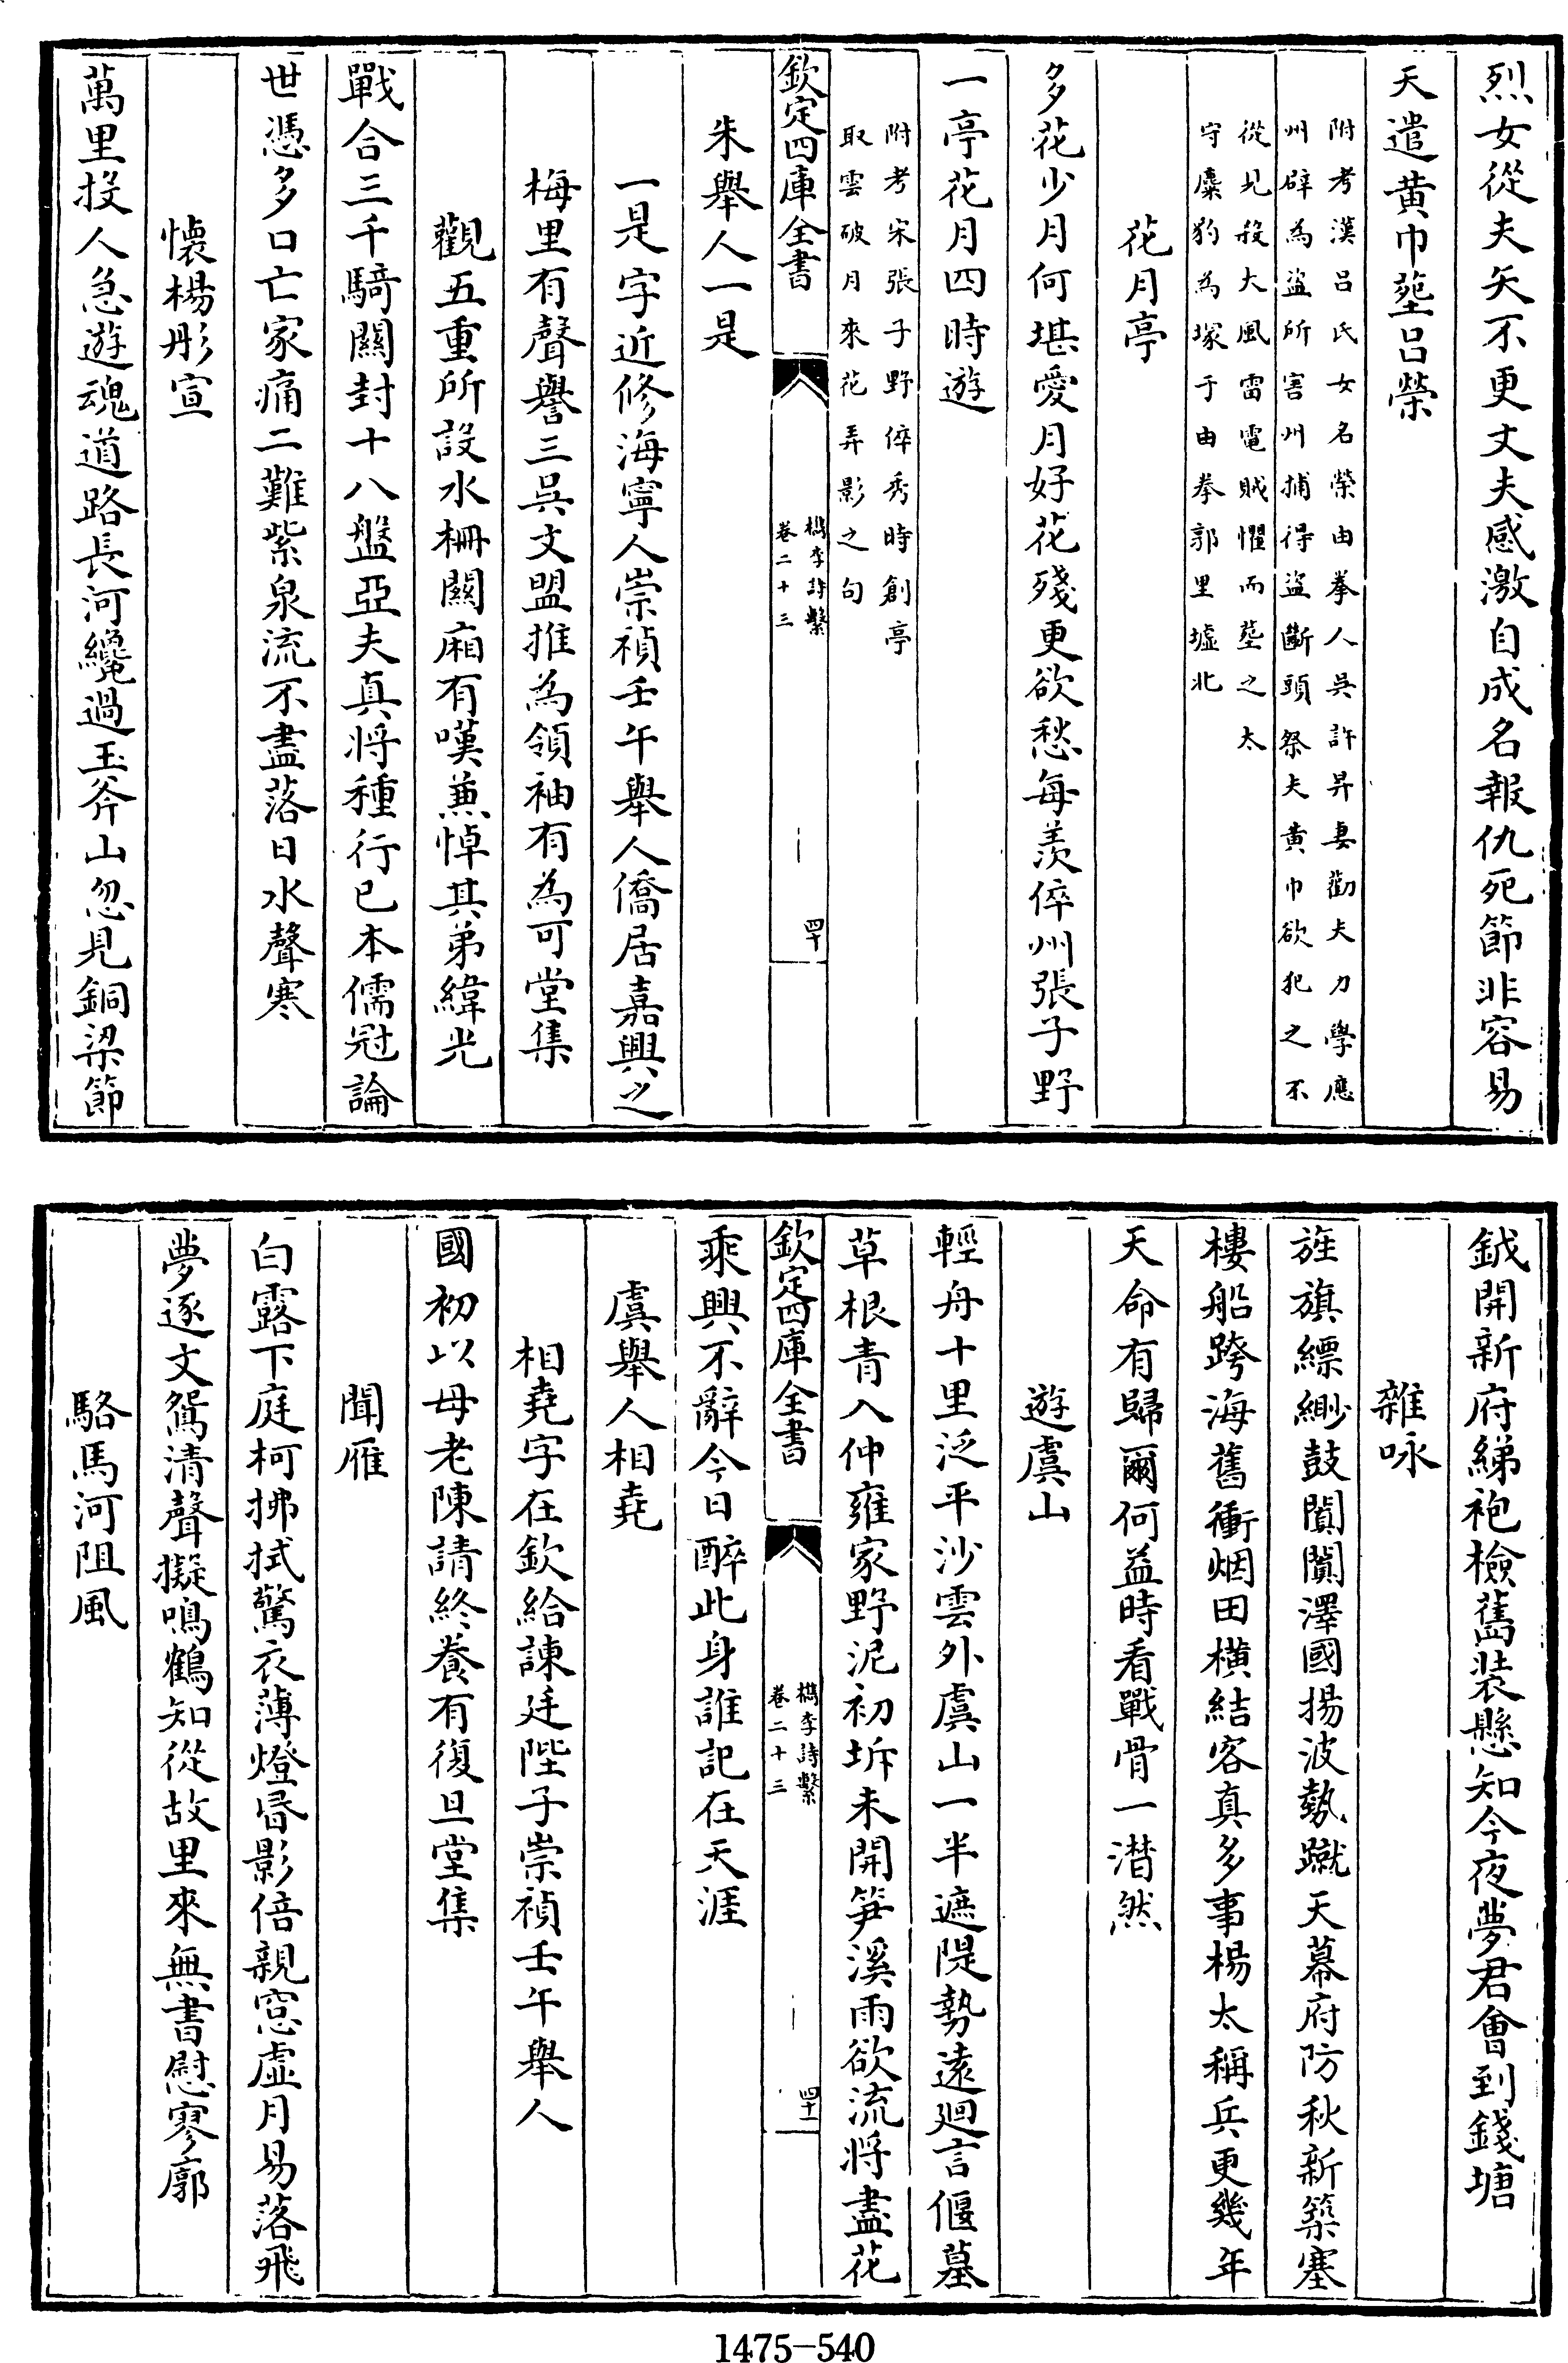 烈女從夫矢不更丈夫感激自成名報仇死節非容易
天遣黃巾塟呂榮
附考漢呂氏女名榮由拳人吳許昇妻勸夫力學應
州辟為盜所害州捕得盜斷頭祭夫黃巾欲犯之不
從見殺大風雷電賊懼而塟之太
守麋豹為塚于由拳郭里墟北
花月亭
多花少月何堪愛月好花殘更欲愁每羨倅州張子野
一亭花月四時遊
附考宋張子野倅秀時創亭
取雲破月來花弄影之句
欽定四庫全書
檇李詩繫
卷二十三
四十
朱舉人一是
一是字近修海寧人崇禎壬午舉人僑居嘉興之
梅里有聲譽三吳文盟推為領袖有為可堂集
觀五重所設水柵闗廂有嘆兼悼其弟緯光
戰合三千騎闗封十八盤亞夫真將種行已本儒冠論
世憑多口亡家痛二難紫泉流不盡落日水聲寒
懷楊彤宣
萬里投人急遊魂道路長河纔過玉斧山忽見銅梁節
鉞開新府綈袍檢舊装懸知今夜夢君會到錢塘
雜咏
旌旗縹緲鼓闐闐澤國揚波勢蹴天幕府防秋新築塞
樓船跨海舊衝烟田橫結客真多事楊太稱兵更幾年
天命有歸爾何益時看戰骨一潸然
遊虞山
輕舟十里泛平沙雲外虞山一半遮隄勢遠廻言偃墓
草根青入仲雍家野泥初坼未開笋溪雨欲流將盡花
欽定四庫全書
檇李詩繫
卷二十三
四十一
乘興不辭今日醉此身誰記在天涯
虞舉人相堯
相堯字在欽給諫廷陛子崇禎壬午舉人
國初以母老陳請終養有復旦堂集
聞雁
白露下庭柯拂拭驚衣薄燈昬影倍親窓虛月易落飛
夢逐文鴛清聲擬鳴鶴知從故里來無書慰寥廓
駱馬河阻風
1475-540